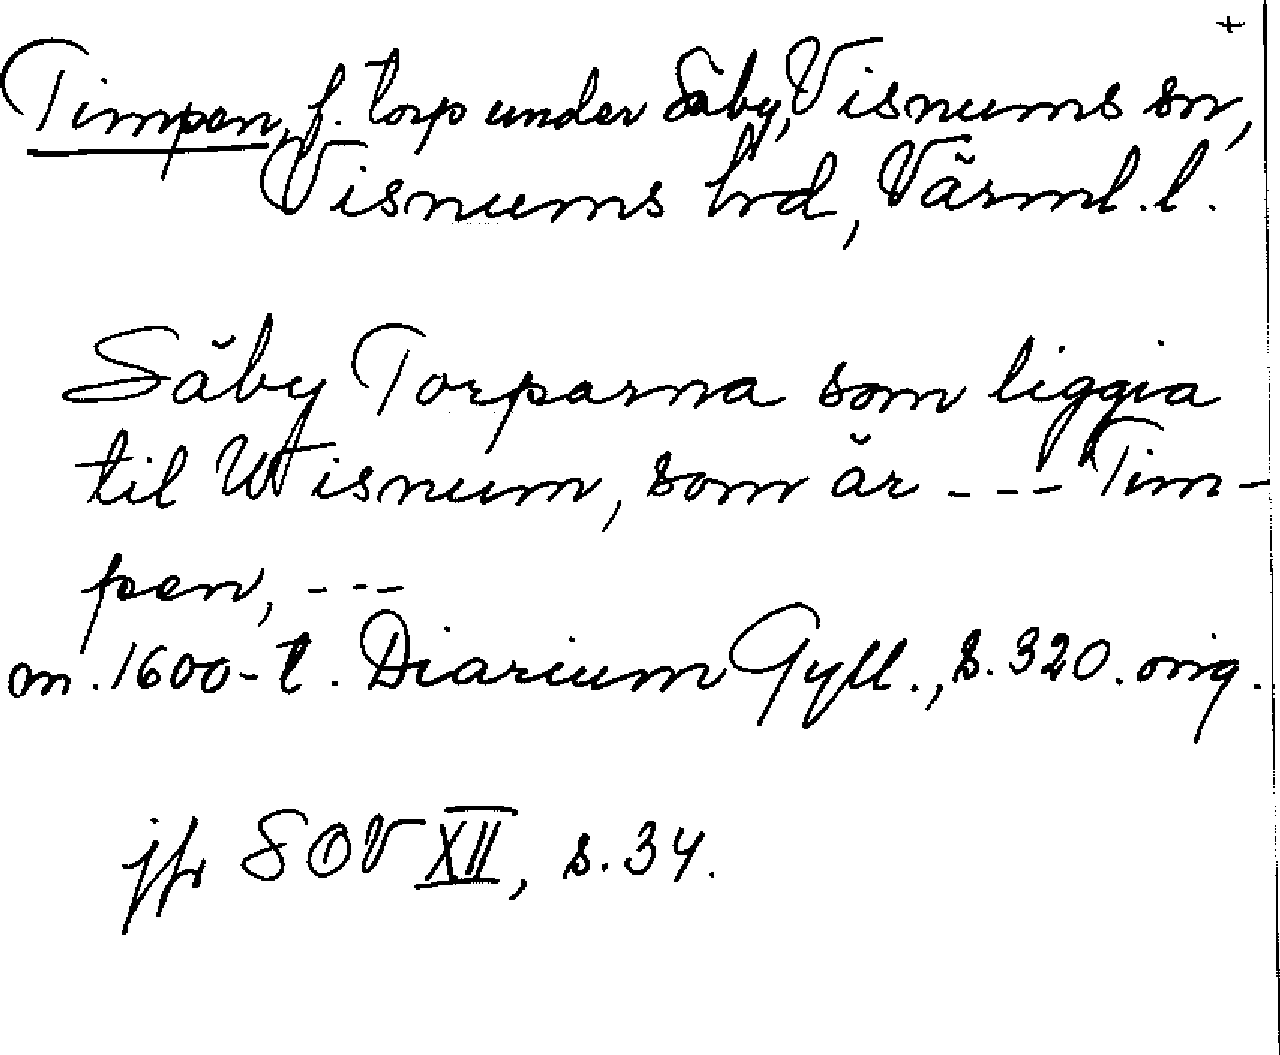 +
Timpen, f. torp under Säby, Visnums sn,
Visnums hrd, Värml. l.
Säby Torparna som liggia
til Wisnum, som är --- Tim-
pen, ---
m. 1600-t. Diarium Gyll., s. 320. orig.
jfr SOV XII, s. 34.